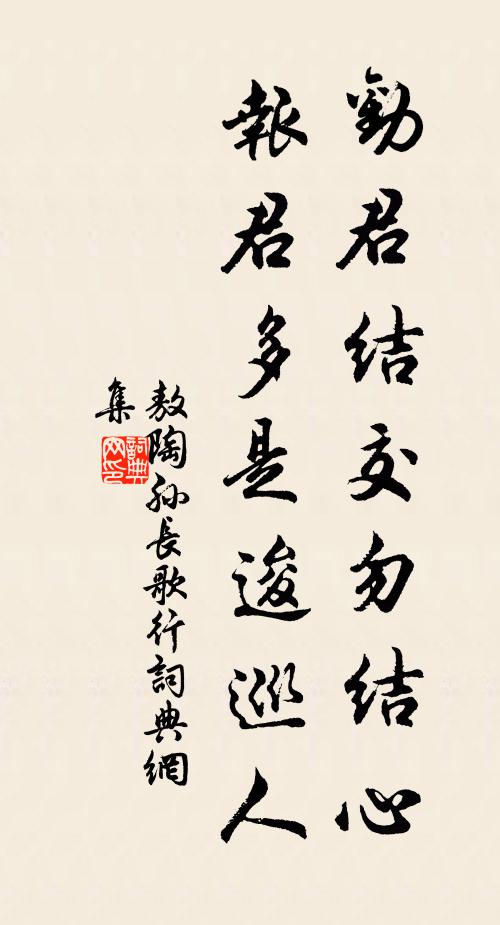 勸君結交勿結心
報君多是逡巡人
敖陶孫長歌行詞典網
集
詞典網印